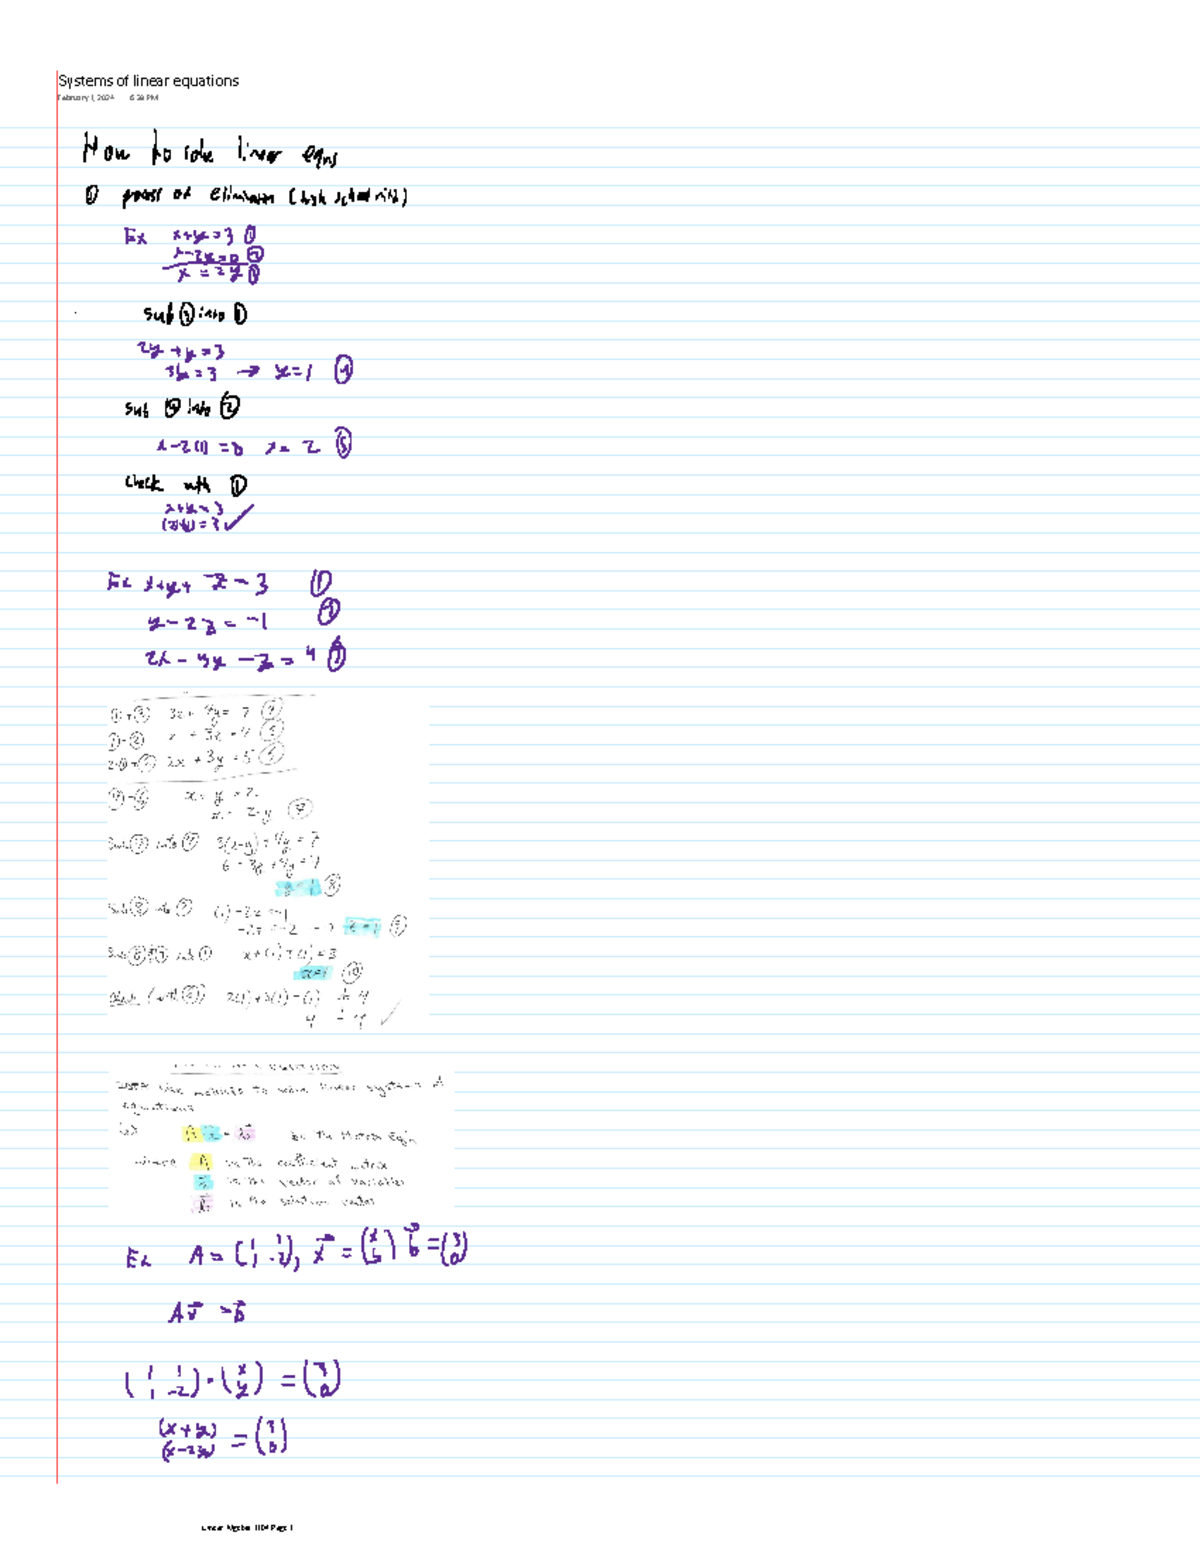 Systems of linear equations
February 1, 2024 6:28 PM
How to solve linear eqns
① process of elimination (high school
Ex x+y=3 ①
x-2y=0 ②
x = 2y ③
Sub ③ into ①
2y + y = 3
3y = 3 → y=1 ④
Sub ④ into ②
x-2(1) = 0 x = 2 ⑤
Check with ①
x+y = 3
= 3 ✓
Ex x+y+ z = 3 ①
y-2z = -1
2x - -z = 4
①+③ 3x + 4y = 7 ④
①-② x + 3z = 4 ⑤
2x + 3y = 5 ⑥
④-⑥ x + y = 2
x = 2-y ⑦
Sub ⑦ into ④ 3(2-y)+4y = 7
6 - 3y + 4y = 7
y = 1 ⑧
Sub ⑧ into ② (1)-2z = -1
-2z = -2 → z=1 ⑨
x+(1)+(1) = 3
x=1 ⑩
Check 2(1)+3(1)-(1) = 4
4 = 4 ✓
use matrices to solve linear systems of
equations
Let A x = b be the Matrix Eqn
where A is the coefficient matrix
x is the vector of variables
b is the solution vector
Ex A = (1 1, 1 -2), x = b = (3 0)
A = b
(1 1, 1 -2) · (x y) = (3 0)
(x+y)
(x-2y) = (3 0)
Linear Algebra Page 1